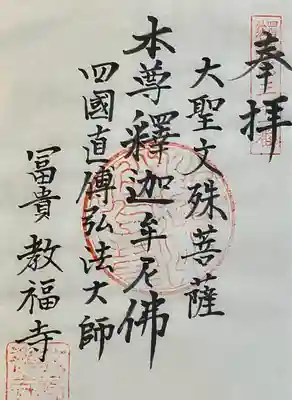 奉拝
大聖文殊菩薩
本尊釋迦牟尼佛
四國直傳弘法大師
冨貴 教福寺